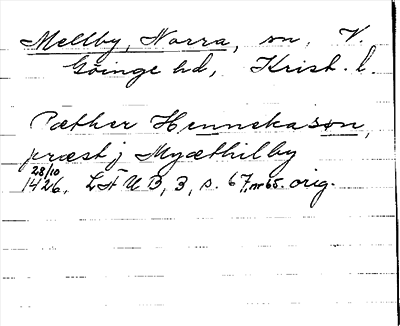 Mellby, Norra, sn, V.
Göinge hd, Krist. l.
Pæther Hennekason,
præst j Myæthilby
28/10
1426. LÄUB, 3, s. 67, nr 65. orig.